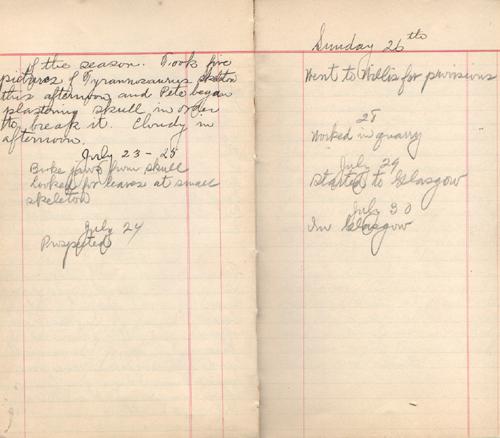 of the season. Took five
pictures of Tyrannosaurus skeleton
this afternoon and Pete began
plastering skull in order
to break it. Cloudy in
afternoon.
July 23-25
Broke jaws from skull
Looked for leaves at small
skeleton
July 24
Prospected
Sunday 26th
Went to Willis for provisions
28
Worked in quarry
July 29
Started to Glasgow
July 30
In Glasgow